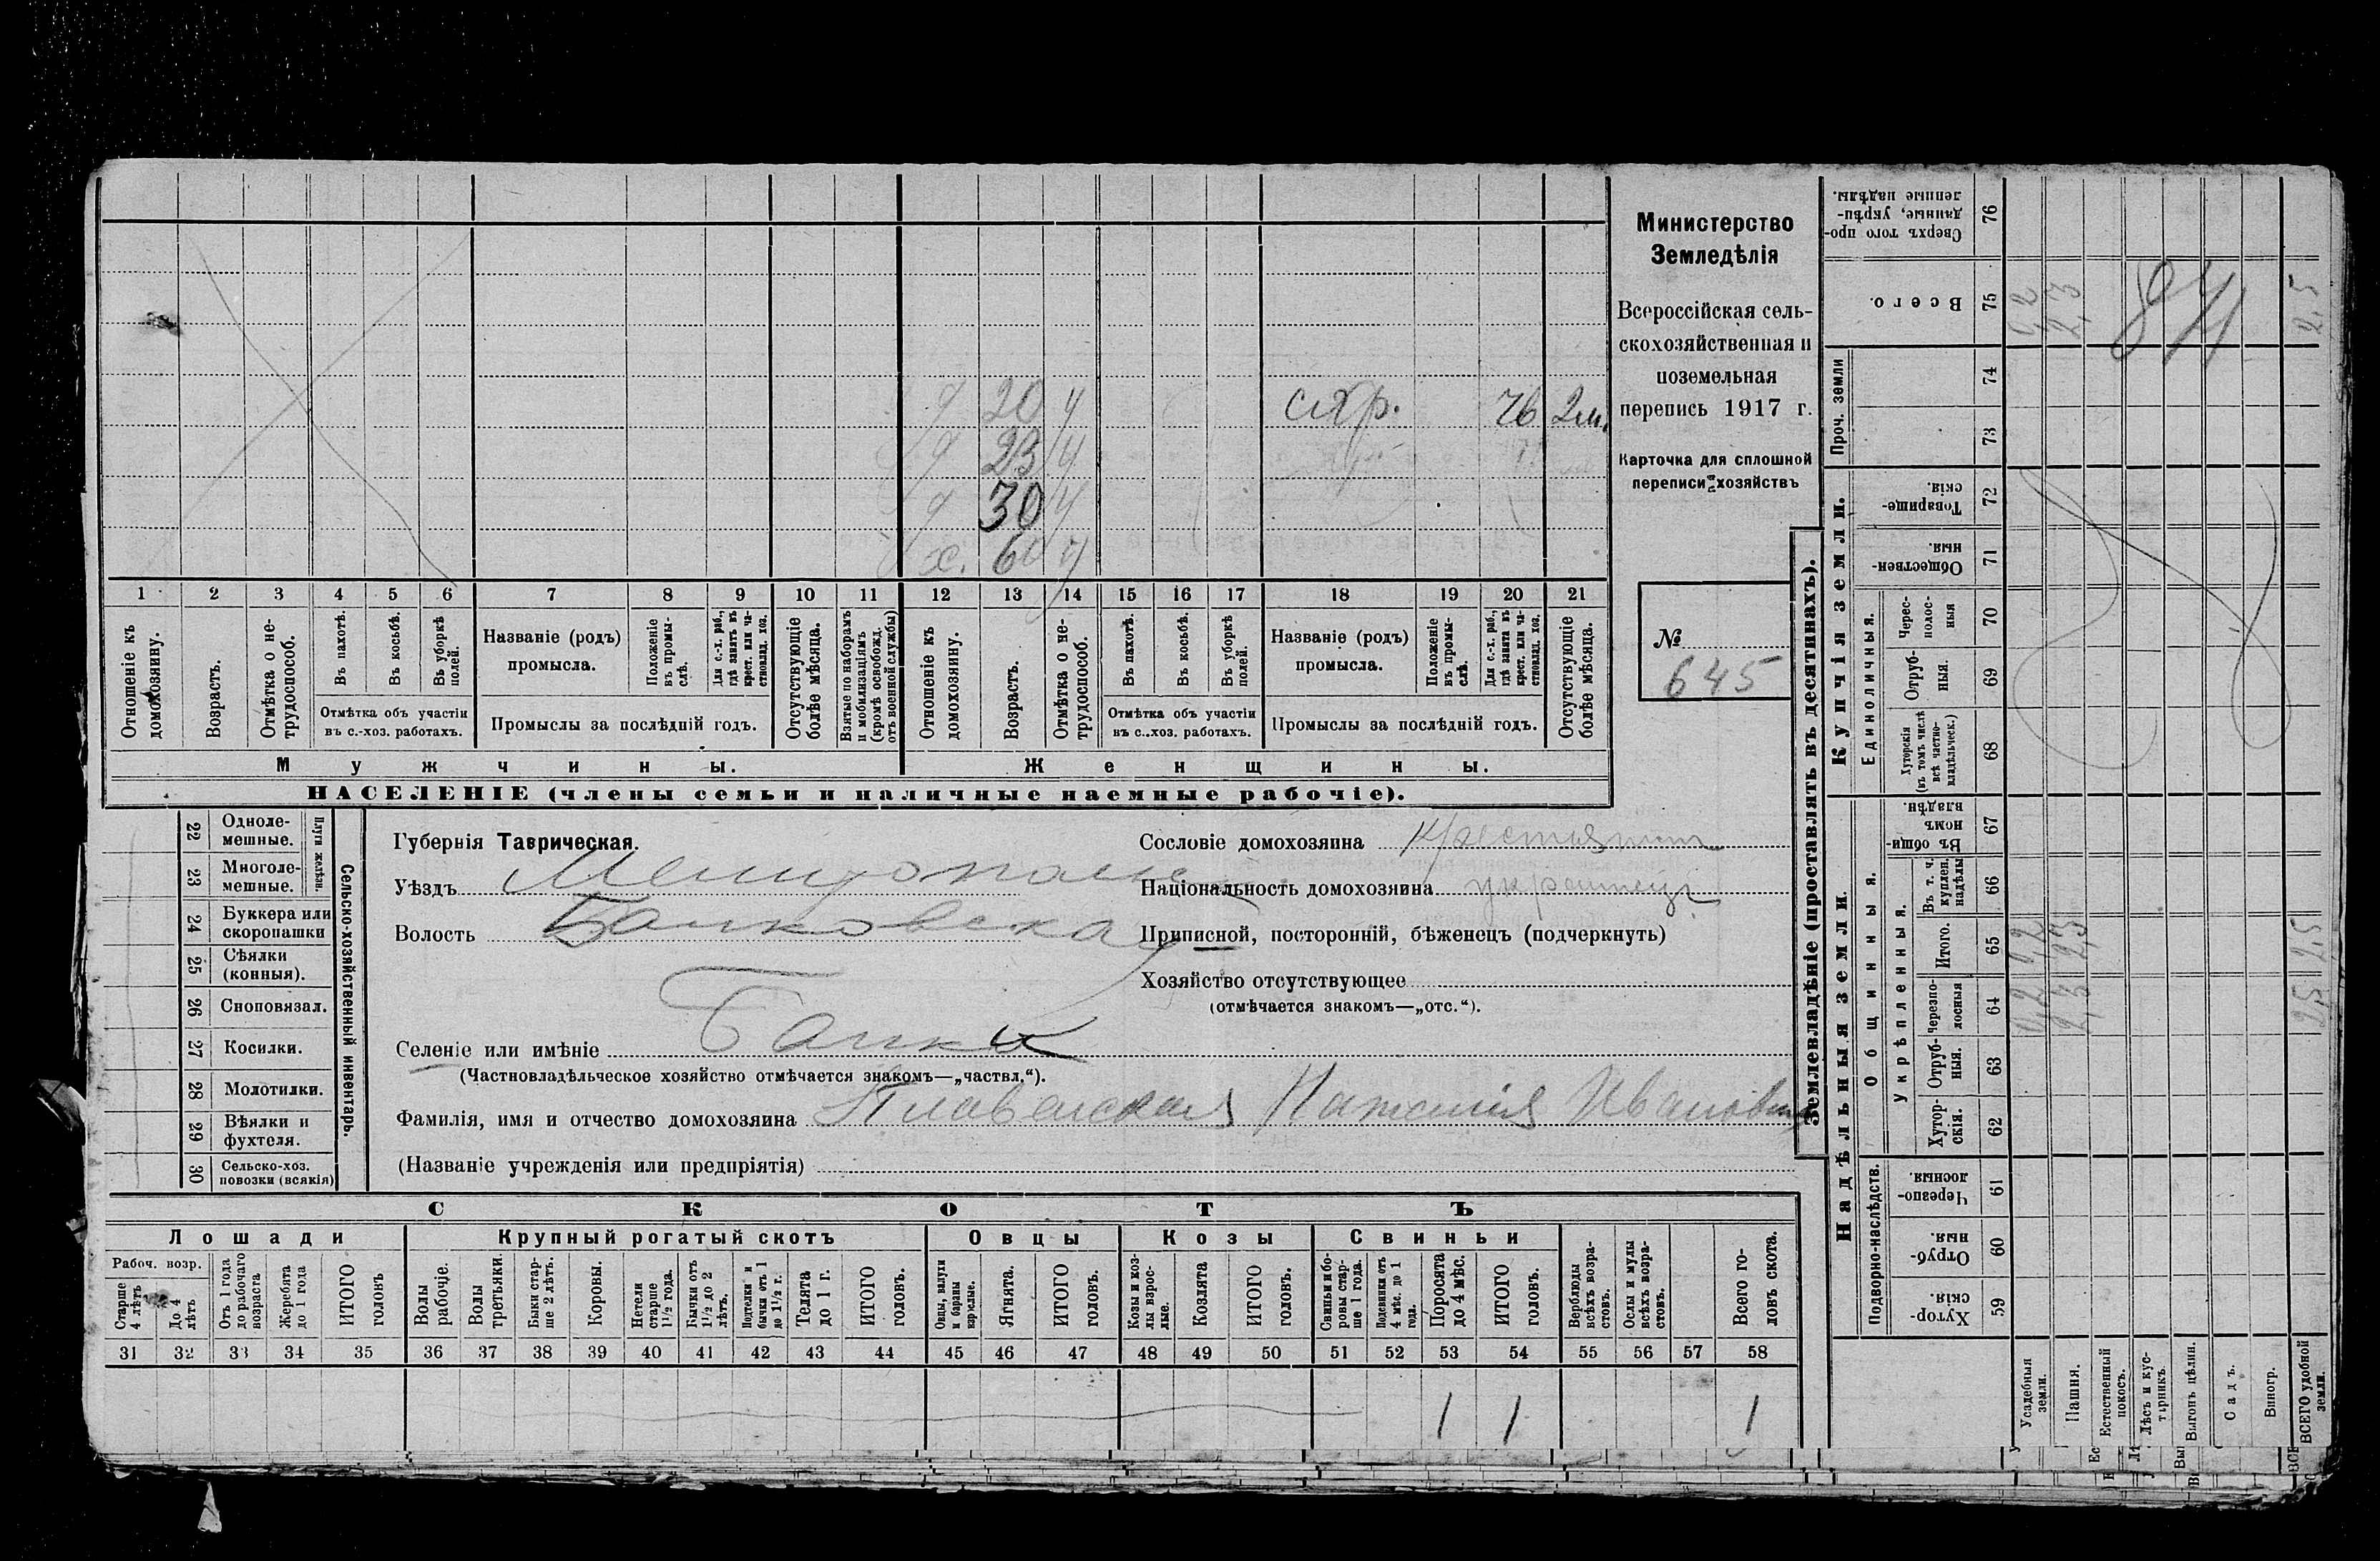 20 ч схр. чб 2м.
23 ч
30 ч
х. 60 ч
1 2 3 4 5 6 7 8 9 10 11 12 13 14 15 16 17 18 19 20 21
Отношеніе къ домохозяину.
Возрастъ.
Отмѣтка о нетрудоспособ.
Въ пахотѣ.
Въ косьбѣ.
Въ уборкѣ полей.
Отмѣтка объ участіи въ с.-хоз. работахъ.
Названіе (родъ) промысла.
Положеніе въ промыслѣ.
Для с.-х. раб., гдѣ занятъ въ крест. или частновлад. хоз.
Промыслы за послѣдній годъ.
Отсутствующіе болѣе мѣсяца.
Взятые по наборамъ и мобилизаціямъ (кромѣ освобожд. отъ военной службы)
Отношеніе къ домохозяину.
Возрастъ.
Отмѣтка о нетрудоспособ.
Въ пахотѣ.
Въ косьбѣ.
Въ уборкѣ полей.
Отмѣтка объ участіи въ с.-хоз. работахъ.
Названіе (родъ) промысла.
Положеніе въ промыслѣ.
Для с.-х. раб., гдѣ занята въ крест. или частновлад. хоз.
Промыслы за послѣдній годъ.
Отсутствующіе болѣе мѣсяца.
Мужчины. Женщины.
НАСЕЛЕНІЕ (члены семьи и наличные наемные рабочіе).
Министерство
Земледѣлія
Всероссійская сель-
скохозяйственная и
поземельная
перепись 1917 г.
Карточка для сплошной
переписи хозяйствъ
№
645
22 Одноле-мешные.
23 Многоле-мешные.
Плуги желѣзн.
24 Буккера или скоропашки
25 Сѣялки (конныя).
26 Сноповязал.
27 Косилки.
28 Молотилки.
29 Вѣялки и фухтеля.
30 Сельско-хоз. повозки (всякія)
Сельско-хозяйственный инвентарь.
Губернія Таврическая.
Уѣздъ Мелитополь
Волость Банковская
Селеніе или имѣніе Банки
(Частновладѣльческое хозяйство отмѣчается знакомъ—„частвл.“).
Сословіе домохозяина крестьянин
Національность домохозяина украинец
Приписной, посторонній, бѣженецъ (подчеркнуть)
Хозяйство отсутствующее
(отмѣчается знакомъ—„отс.“).
Фамилія, имя и отчество домохозяина Наталія Ивановна
(Названіе учрежденія или предпріятія)
СКОТЪ
Лошади Крупный рогатый скотъ Овцы Козы Свиньи
Рабоч. возр.
Старше 4 лѣтъ
До 4 лѣтъ
Отъ 1 года до рабочаго возраста
Жеребята до 1 года
ИТОГО головъ
Волы рабочіе.
Волы третьяки.
Быки старше 2 лѣтъ.
Коровы.
Нетели старше 1½ года.
Бычки отъ 1½ до 2 лѣтъ.
Подтелки и бычки отъ 1 до 1½ г.
Телята до 1 г.
ИТОГО головъ.
Овцы, валухи и бараны взрослые.
Ягнята.
ИТОГО головъ.
Козы и козлы взрослые.
Козлята
ИТОГО головъ.
Свиньи и боровы старше 1 года.
Подсвинки отъ 4 мѣс. до 1 года.
Поросята до 4 мѣс.
ИТОГО головъ.
Верблюды всѣхъ возрастовъ.
Ослы и мулы всѣхъ возрастовъ.
Всего головъ скота.
31 32 33 34 35 36 37 38 39 40 41 42 43 44 45 46 47 48 49 50 51 52 53 54 55 56 57 58
1 1 1
Землевладѣніе (проставлять въ десятинахъ).
Надѣльныя земли. Купчія земли. Проч. земли
Подворно-наслѣдств.
Общинныя.
Укрѣпленныя.
Единоличныя.
Хуторскія 59
Отрубныя. 60
Черезполосныя 61
Хуторскія. 62
Отрубныя. 63
Черезполосныя 64
Итого. 65
Въ т. ч. куплен. надѣлы 66
Въ общинномъ владѣн. 67
Хуторскія (въ томъ числѣ всѣ частновладѣльческ.) 68
Отрубныя. 69
Чересполосныя 70
Общественныя. 71
Товарищескія. 72
73
74
Всего. 75
Сверхъ того проданные, укрѣпленные надѣлы. 76
Усадебныя земли. 0,2 0,2 0,2
Пашня. 2,3 2,3 2,3
Естественный покосъ.
Лѣсъ и кустарникъ.
Выгонъ цѣлин.
Садъ.
Виногр.
ВСЕГО удобной земли. 2,5 2,5 2,5
84